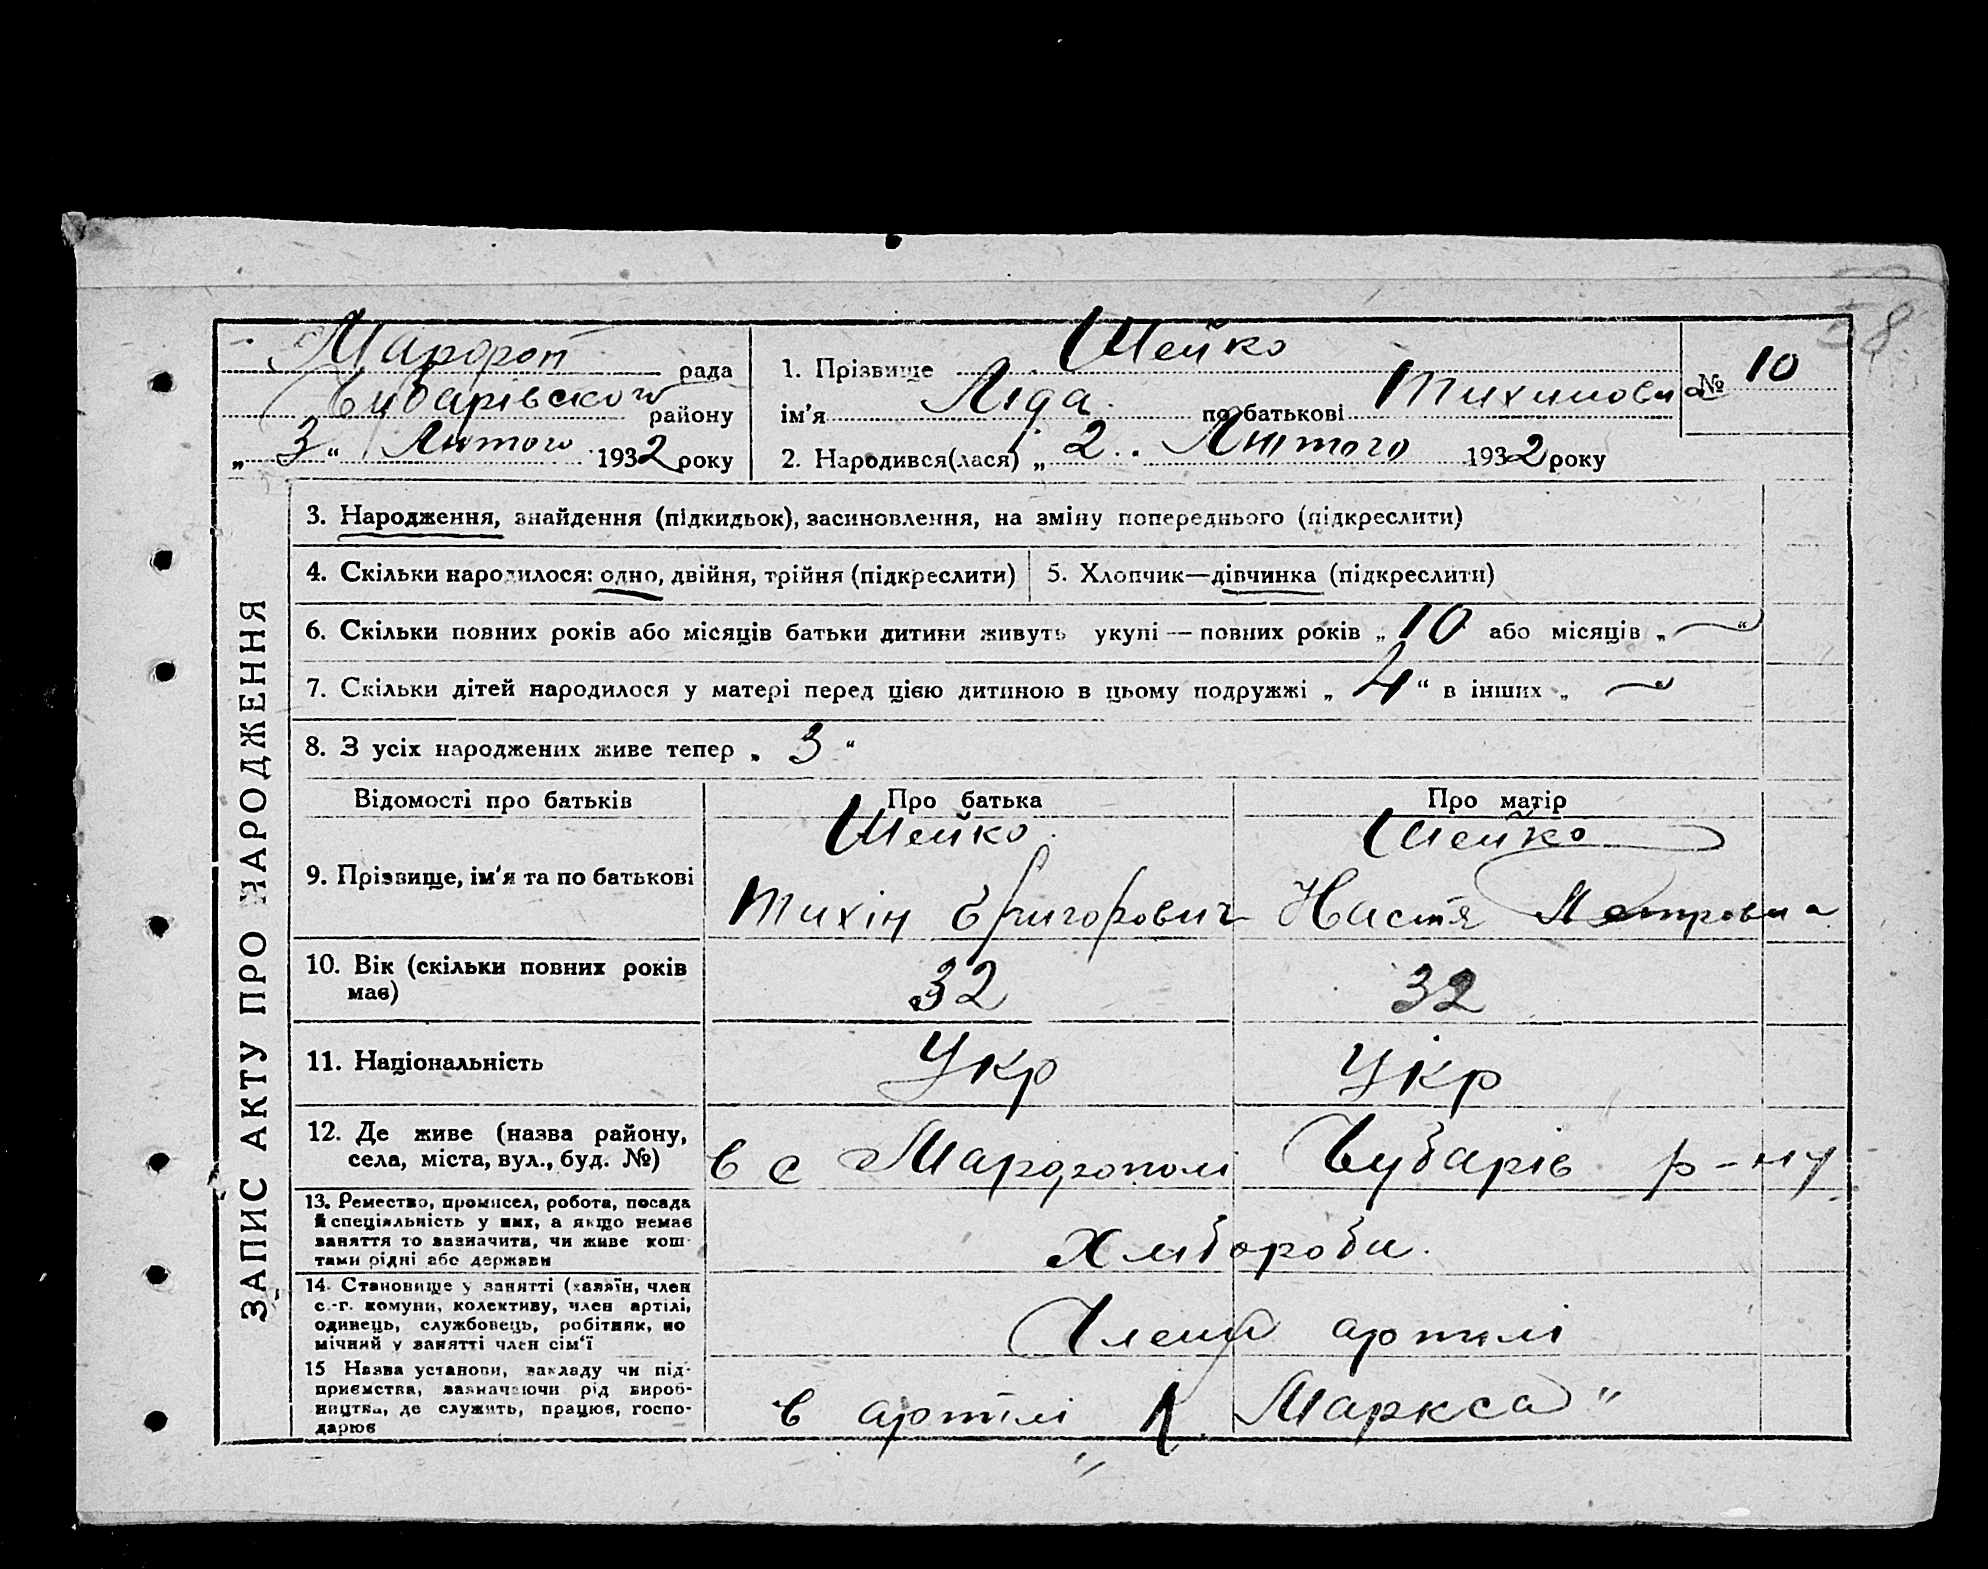 58
Маророп рада
Чубарівсього району
„3“ Лютого 1932 року
1. Прізвище Шейко
ім'я Ліда по батькові Тихинович
2. Народився(лася) „2.. Лютого 1932 року
№ 10
ЗАПИС АКТУ ПРО НАРОДЖЕННЯ
3. Народження, знайдення (підкидьок), засиновлення, на зміну попереднього (підкреслити)
4. Скільки народилося: одно, двійня, трійня (підкреслити)
5. Хлопчик—дівчинка (підкреслити)
6. Скільки повних років або місяців батьки дитини живуть укупі — повних років „10 або місяців „ — “
7. Скільки дітей народилося у матері перед цією дитиною в цьому подружжі „4“ в інших „ — “
8. З усіх народжених живе тепер „3“
Відомості про батьків Про батька Про матір
9. Прізвище, ім'я та по батькові
Шейко Шейко
Тихін Григорович Настя Петровна
10. Вік (скільки повних років
має)
32 32
11. Національність Укр Укр
12. Де живе (назва району,
села, міста, вул., буд. №)
в с Чубарів р-ну
13. Ремество, промисел, робота, посада
й спеціяльність у них, а якщо немає
заняття то зазначити, чи живе кош-
тами рідні або держави
Хлібороби.
14. Становище у занятті (хазяїн, член
с.-г. комуни, колективу, член артілі,
одинець, службовець, робітник, по
мічний у занятті член сім'ї
Члени артілі
15 Назва установи, закладу чи під-
приємства, зазначаючи рід вироб-
ництва, де служить, працює, госпо-
дарює
в артілі „К. Маркса"